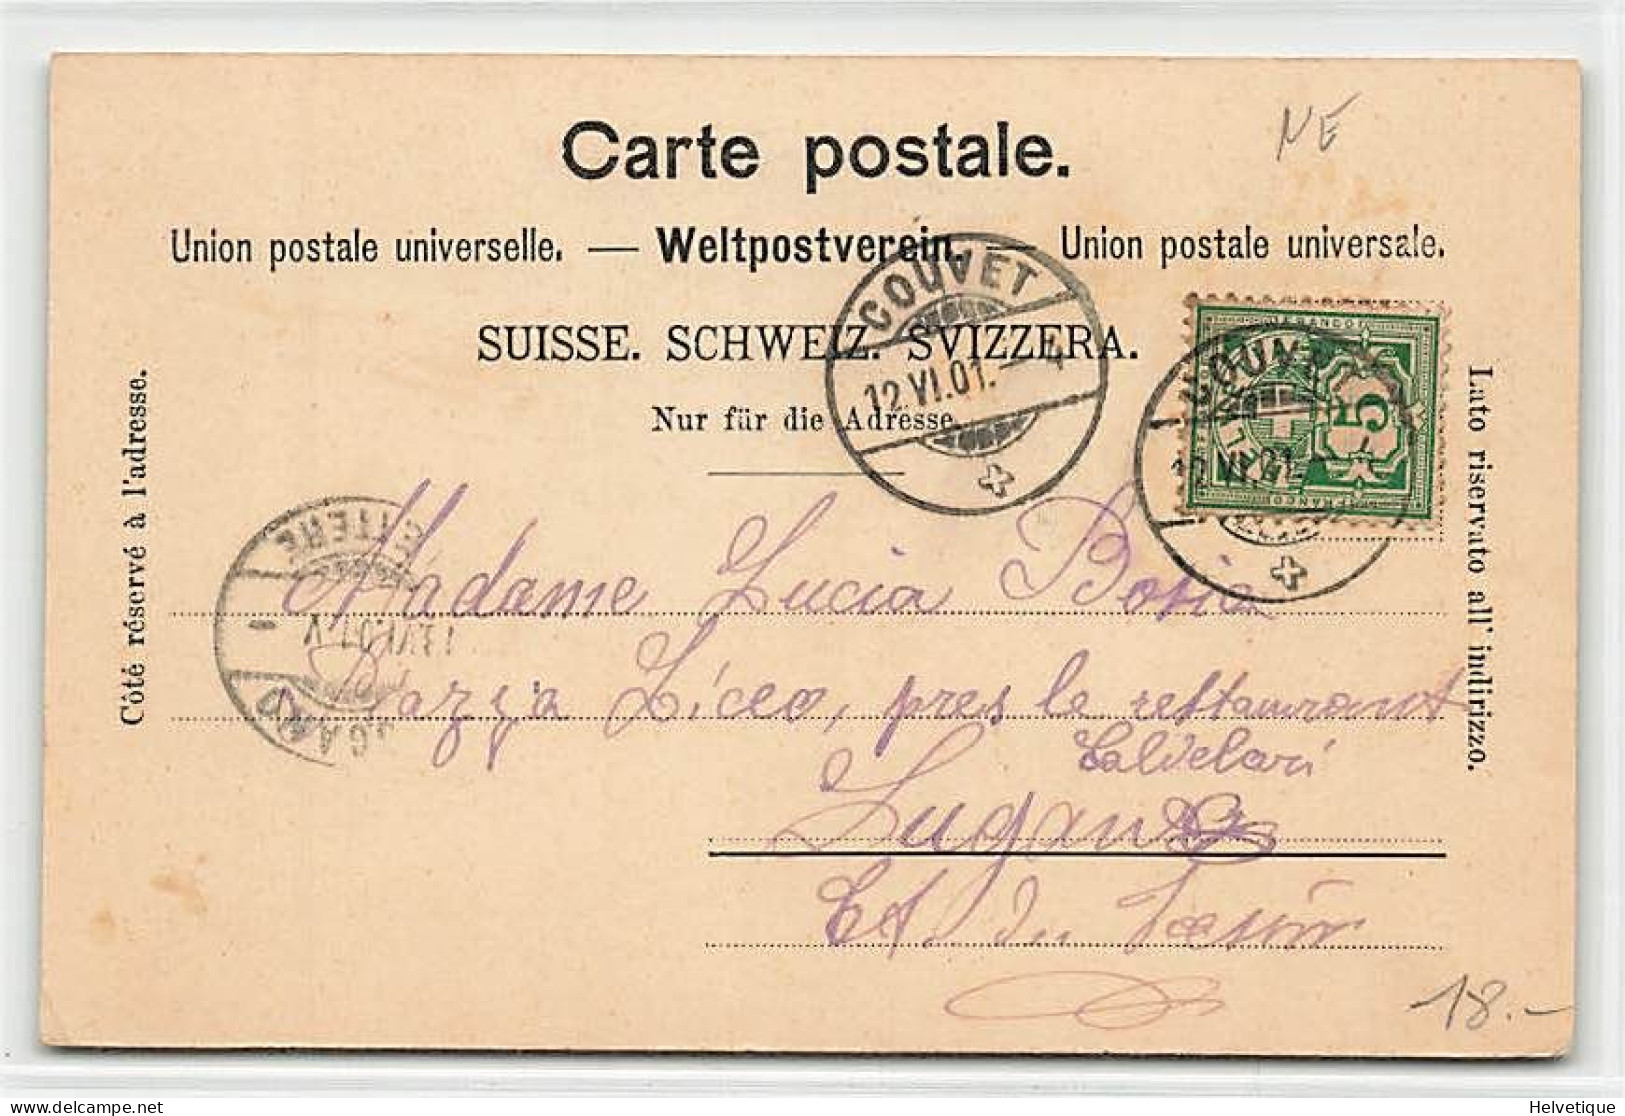 NE
Carte postale.
Union postale universelle. — Weltpostverein. — Union postale universale.
SUISSE. SCHWEIZ. SVIZZERA.
Nur für die Adresse.
COUVET
12.VI.01.–4
COUVET
12.VI.01.–4
FRANCO
HELVETIA
5
FRANCO
Côté réservé à l'adresse.
Lato riservato all' indirizzo.
LUGANO
LETTERE
Madame Lucia
Piazza Liceo, pres le restaurant
Lugano
Ct du Tessin
18.–
delcampe.net
Helvetique